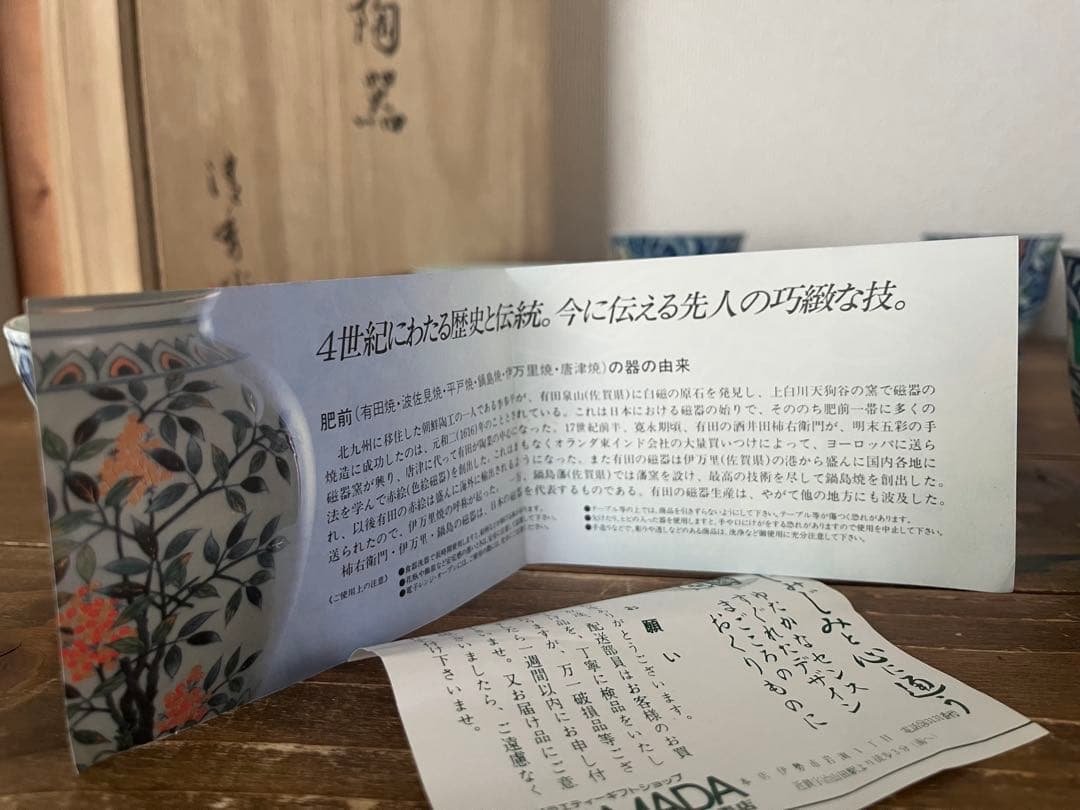 陶器
清秀
4世紀にわたる歴史と伝統。今に伝える先人の巧緻な技。
肥前(有田焼・波佐見焼・平戸焼・鍋島焼・伊万里焼・唐津焼)の器の由来
北九州に移住した朝鮮陶工の一人である李参平が、有田泉山(佐賀県)に白磁の原石を発見し、上白川天狗谷の窯で磁器の
焼造に成功したのは、元和二(1616)年のこととされている。これは日本における磁器の始りで、そののち肥前一帯に多くの
磁器窯が興り、唐津に代って有田が陶業の中心になった。17世紀前半、寛永期頃、有田の酒井田柿右衛門が、明末五彩の手
法を学んで赤絵(色絵磁器)を創出した。これはまもなくオランダ東インド会社の大量買いつけによって、ヨーロッパに送ら
れ、以後有田の赤絵は盛んに海外に輸出されるようになった。また有田の磁器は伊万里(佐賀県)の港から盛んに国内各地に
送られたので、伊万里焼の呼称が起った。一方、鍋島藩(佐賀県)では藩窯を設け、最高の技術を尽して鍋島焼を創出した。
柿右衛門・伊万里・鍋島の磁器は、日本の磁器を代表するものである。有田の磁器生産は、やがて他の地方にも波及した。
《ご使用上の注意》
●テーブル等の上では、商品を引きずらないようにして下さい。テーブル等が傷つく恐れがあります。
●欠けたり、ヒビの入った器を使用しますと、手や口にけがをする恐れがありますので使用を中止して下さい。
●手造りなどで、彫りや透しなどのある商品は、洗浄など御使用に充分注意して下さい。
みじみと心に通う
ゆたかなセンス
すぐれたデザイン
まごころのものに
おくりもの
お願い
りがとうございます。
、配送部員はお客様のお買
品を、丁寧に検品をいたし
ますが、万一破損品等ござ
たら一週間以内にお申し付
いませ。又お届け品にご意
いましたら、ご遠慮なく
け下さいませ。
エティーギフトショップ
MADA
本店 伊勢市岩渕1丁目
近鉄宇治山田駅より徒歩3分